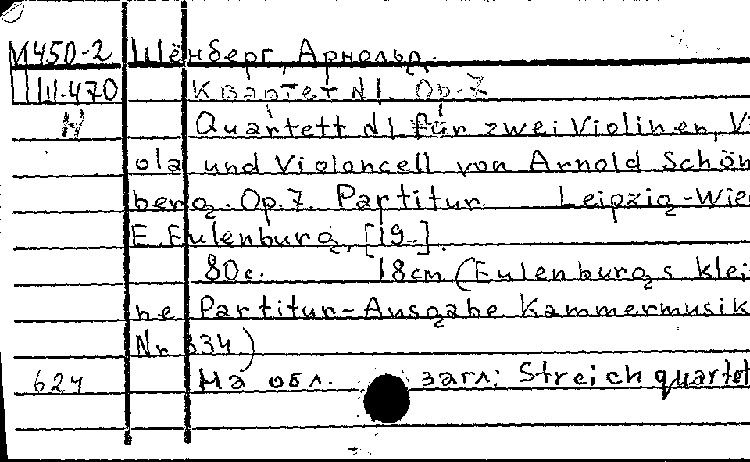 М450-2 Шёнберг, Арнольд.
Ш-470 Квартет №1. Op.7
Н Quartett №1 für zwei Violinen, Vi
ola und Violoncell von Arnold Schön
berg. Op.7. Partitur Leipzig-Wien
E. Eulenburg, [19-].
80с. 18cm (Eulenburgs klei
ne Partitur-Ausgabe Kammermusik
Nr 334)
624 На обл. загл: Streichquartet